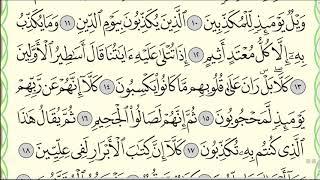 وَيْلٌ يَوْمَئِذٍ لِّلْمُكَذِّبِينَ ١٠ ٱلَّذِينَ يُكَذِّبُونَ بِيَوْمِ ٱلدِّينِ ١١ وَمَا يُكَذِّبُ
بِهِۦٓ إِلَّا كُلُّ مُعْتَدٍ أَثِيمٍ ١٢ إِذَا تُتْلَىٰ عَلَيْهِ ءَايَٰتُنَا قَالَ أَسَٰطِيرُ ٱلْأَوَّلِينَ
١٣ كَلَّا ۖ بَلْ ۜ رَانَ عَلَىٰ قُلُوبِهِم مَّا كَانُوا۟ يَكْسِبُونَ ١٤ كَلَّآ إِنَّهُمْ عَن رَّبِّهِمْ
يَوْمَئِذٍ لَّمَحْجُوبُونَ ١٥ ثُمَّ إِنَّهُمْ لَصَالُوا۟ ٱلْجَحِيمِ ١٦ ثُمَّ يُقَالُ هَٰذَا
ٱلَّذِى كُنتُم بِهِۦ تُكَذِّبُونَ ١٧ كَلَّآ إِنَّ كِتَٰبَ ٱلْأَبْرَارِ لَفِى عِلِّيِّينَ ١٨